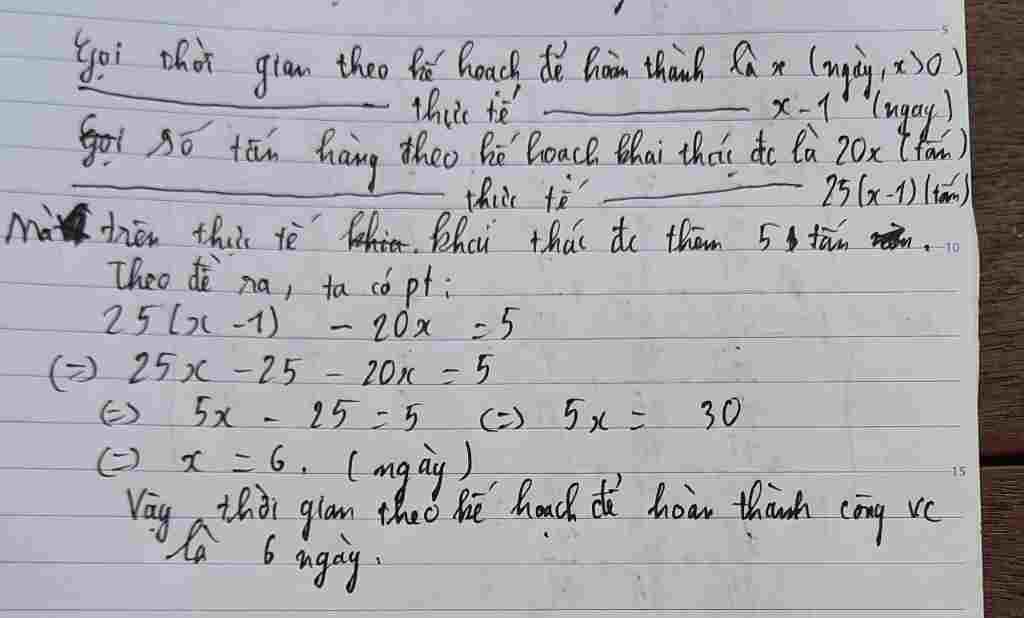 Gọi thời gian theo kế hoạch để hoàn thành là x (ngày, x>0)
thực tế x-1 (ngay)
Gọi số tấn hàng theo kế hoạch khai thác đc là 20x (tấn)
thực tế 25(x-1)(tấn)
Mà trên thực tế khai thác đc thêm 5 tấn.
Theo đề ra, ta có pt:
25(x-1) - 20x = 5
(=) 25x - 25 - 20x = 5
(=) 5x - 25 = 5 (=) 5x = 30
(=) x = 6. (ngày)
Vậy thời gian theo kế hoạch để hoàn thành công vc
là 6 ngày.
5
10
15